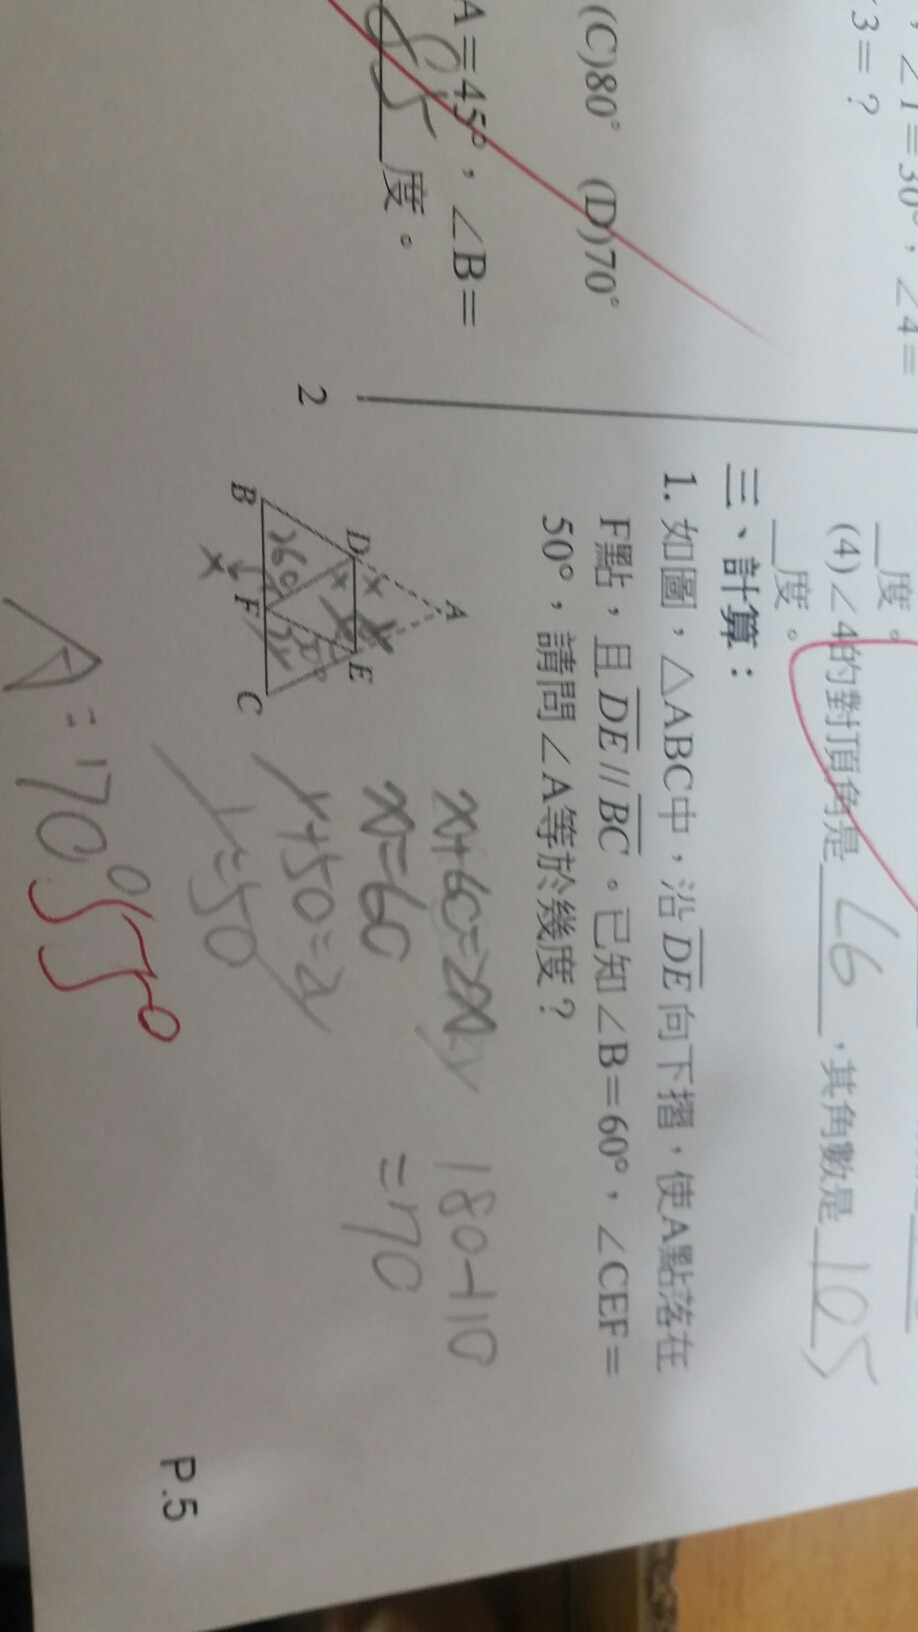 ，∠1=30°，∠4=
∠3=？
(C)80° (D)70°
A=45°，∠B=
85度。
2
度。
(4)∠4的對頂角是∠6，其角數是105
度。
三、計算：
1. 如圖，△ABC中，沿DE向下摺，使A點落在
F點，且DE//BC。已知∠B=60°，∠CEF=
50°，請問∠A等於幾度？
A
D
E
B
F
C
60°
x+60=2x
x=60
y+50=2y
y=50
180-110
=70
A=70°
55°
P.5